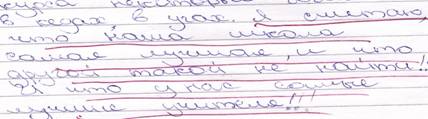 в годах в угах. Я считаю,
что наша школа
самая лучшая, и что
другой такой не найти!!
И что у нас самые
лучшие учителя!!!